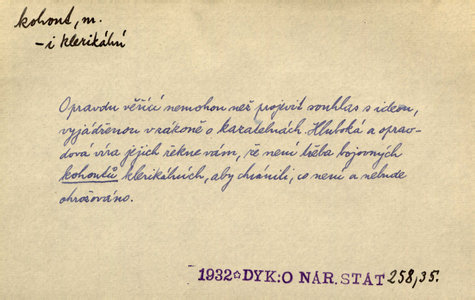 kohout, m.
-i klerikální
Opravdu věřící nemohou než projevit souhlas s ideou,
vyjádřenou v zákoně o kazatelnách. Hluboká a oprav-
dová víra jejich řekne vám, že není třeba bojovných
kohoutů klerikálních, aby chránili, co není a nebude
ohrožováno.
1932 DYK: O NÁR. STÁT 258,35.